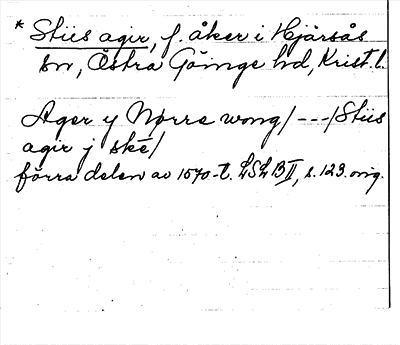 * Stiis agir, f. åker i Hjärsås
sn, Östra Göinge hd, Krist. l.
Ager y Nørre wong/ ---/Stiis
agir j ské/
förra delen av 1570-t. LSLB II, s. 123. orig.